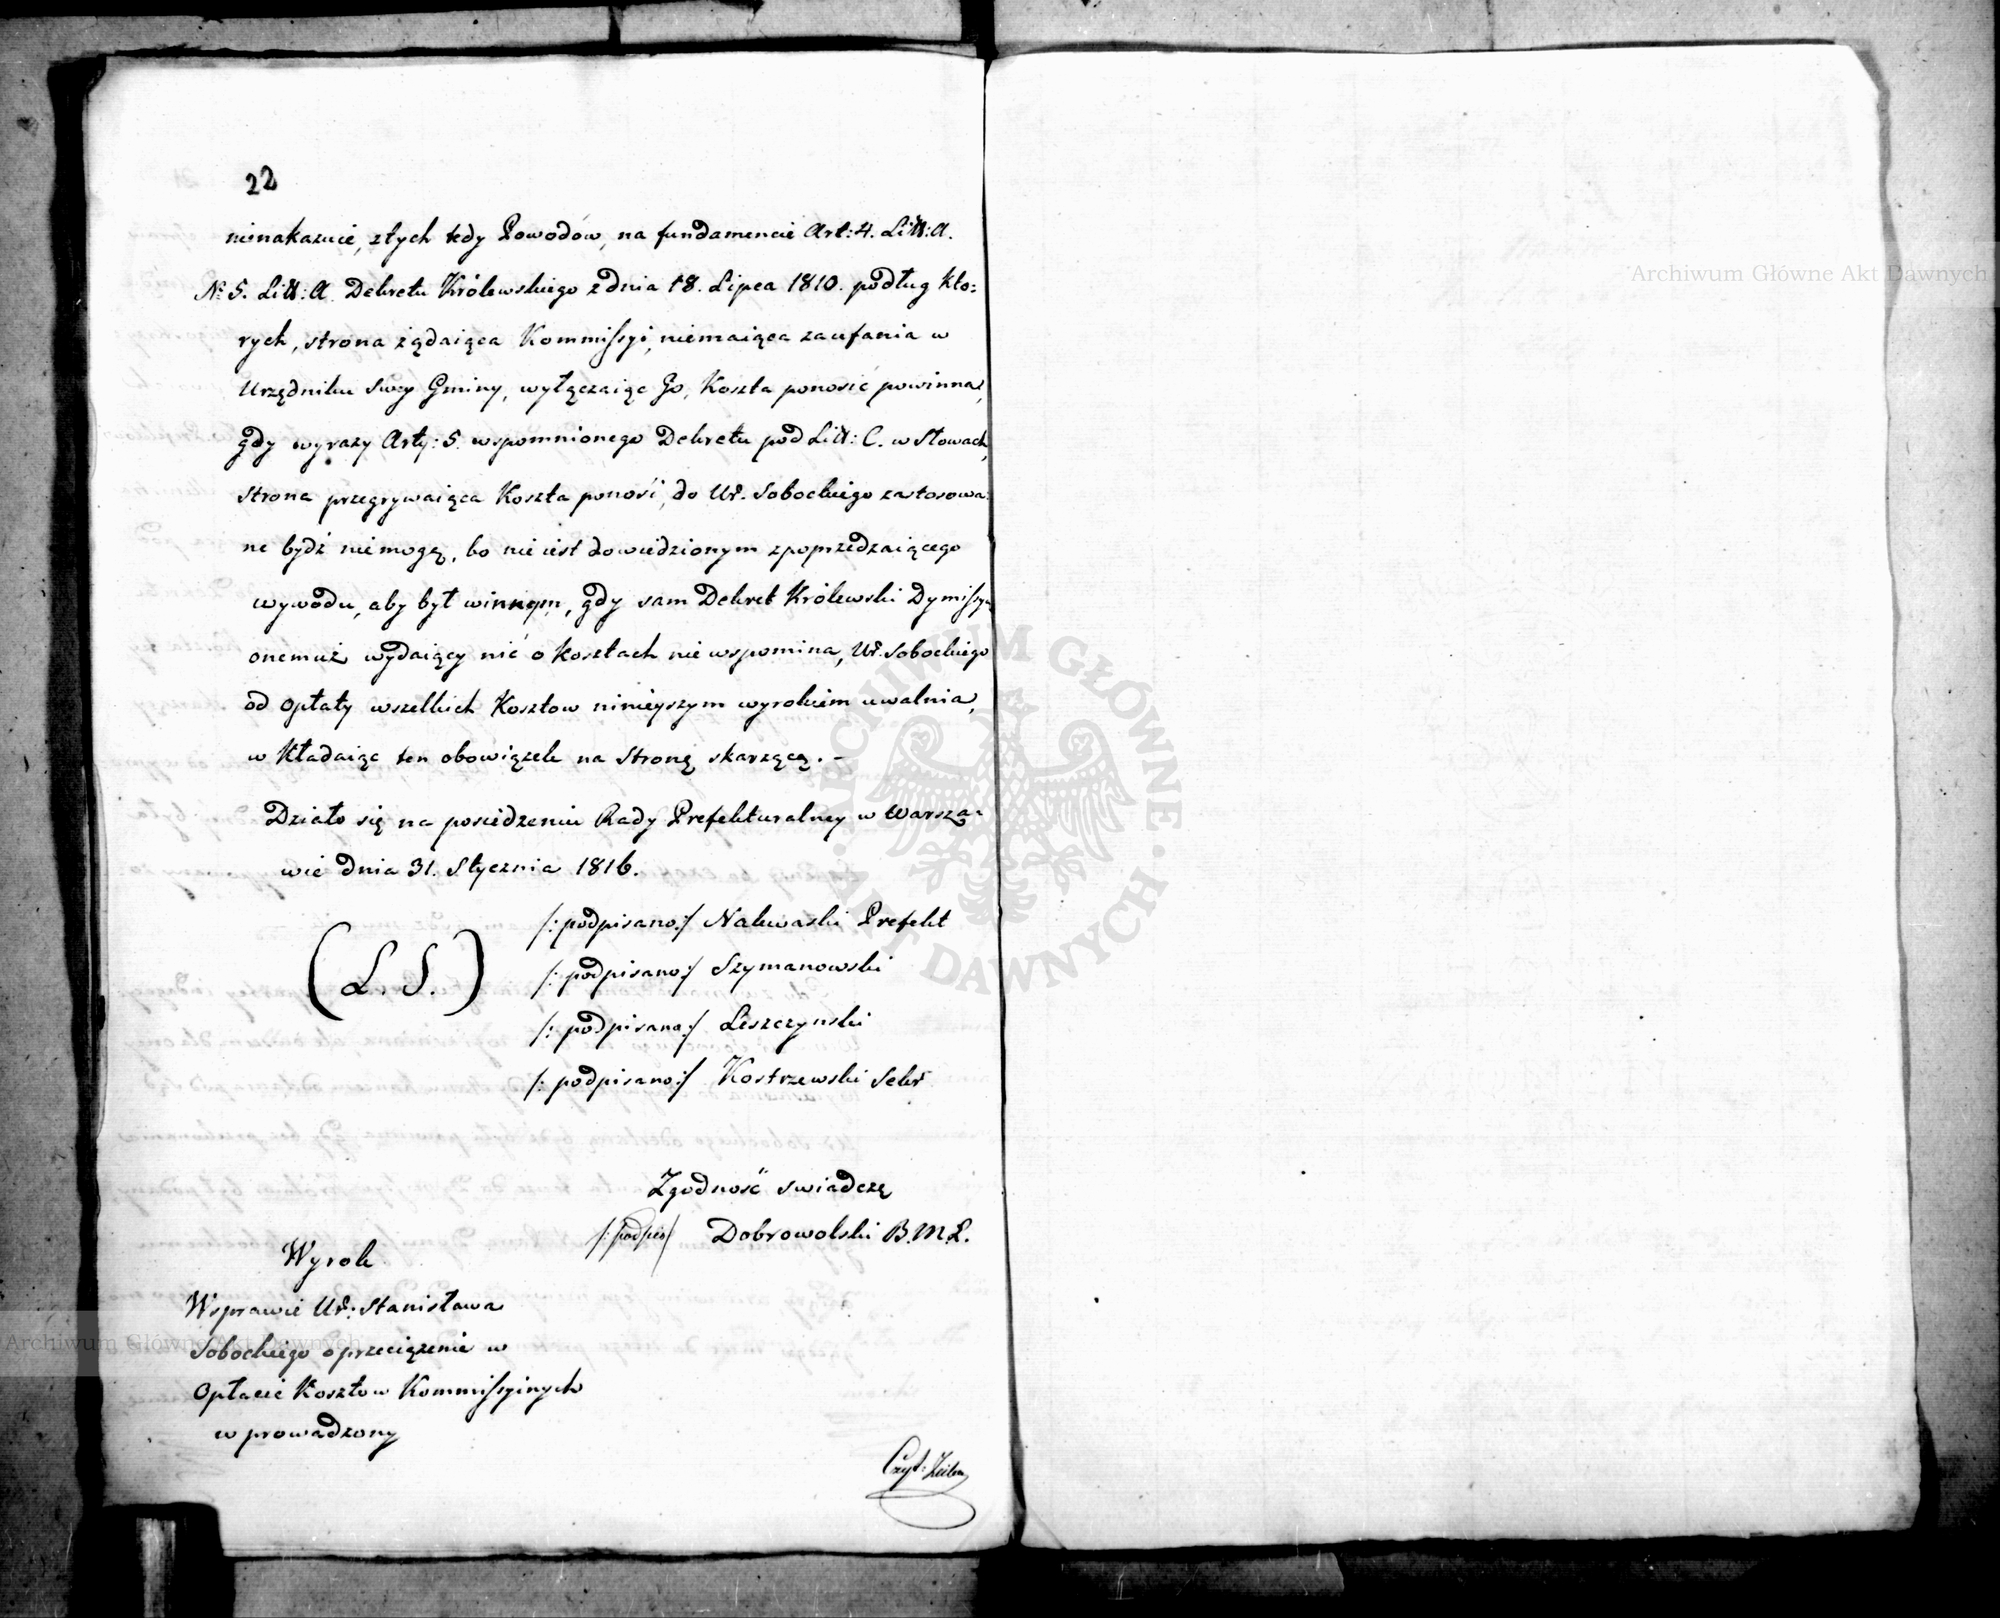 22
nienakazuie, z tych tedy Powodów, na fundamencie Art: 4. Litt: A.
N: 5. Litt: A. Dekretu Królewskiego z dnia 18. Lipca 1810. podług któ:
rych, strona żądaiąca Kommissyi, niemaiąca zaufania w
Urzędniku Swey Gminy, wyłączaiąc Go, Koszta ponosić powinna,
gdy wyrazy Arty: 5. wspomnionego Dekretu pod Litt: C. w Słowach,
strona przegrywaiąca Koszta ponosi, do Ur. Sobockiego zastosowa:
ne bydź niemogą, bo nie iest dowiedzionym zpoprzedzaiącego
wywodu, aby był winnym, gdy sam Dekret Królewski Dymissyą
onemuż wydaiący nic o kosztach nie wspomina, Ur. Sobockiego
od opłaty wszelkich Kosztow ninieyszym wyrokiem uwalnia,
w Kładaiąc ten obowiązek na Stronę skarzącą. -
Działo się na posiedzeniu Rady Prefekturalney w Warsza:
wie dnia 31. Stycznia 1816.
(L. S.)
/: podpisano :/ Nakwaski Prefekt
/: podpisano :/ Szymanowski
/: podpisano :/ Leszczynski
/: podpisano :/ Kostrzewski Sekr
Zgodność swiadczę
/: podpis / Dobrowolski B. M. P.
Wyrok
Wsprawie Ur: Stanisława
Sobockiego o przeciążenie w
Opłacie Kosztow Kommissyinych
w prowadzony
Czyt:
Archiwum Główne Akt Dawnych
Archiwum Główne Akt Dawnych
ARCHIWUM GŁÓWNE AKT DAWNYCH